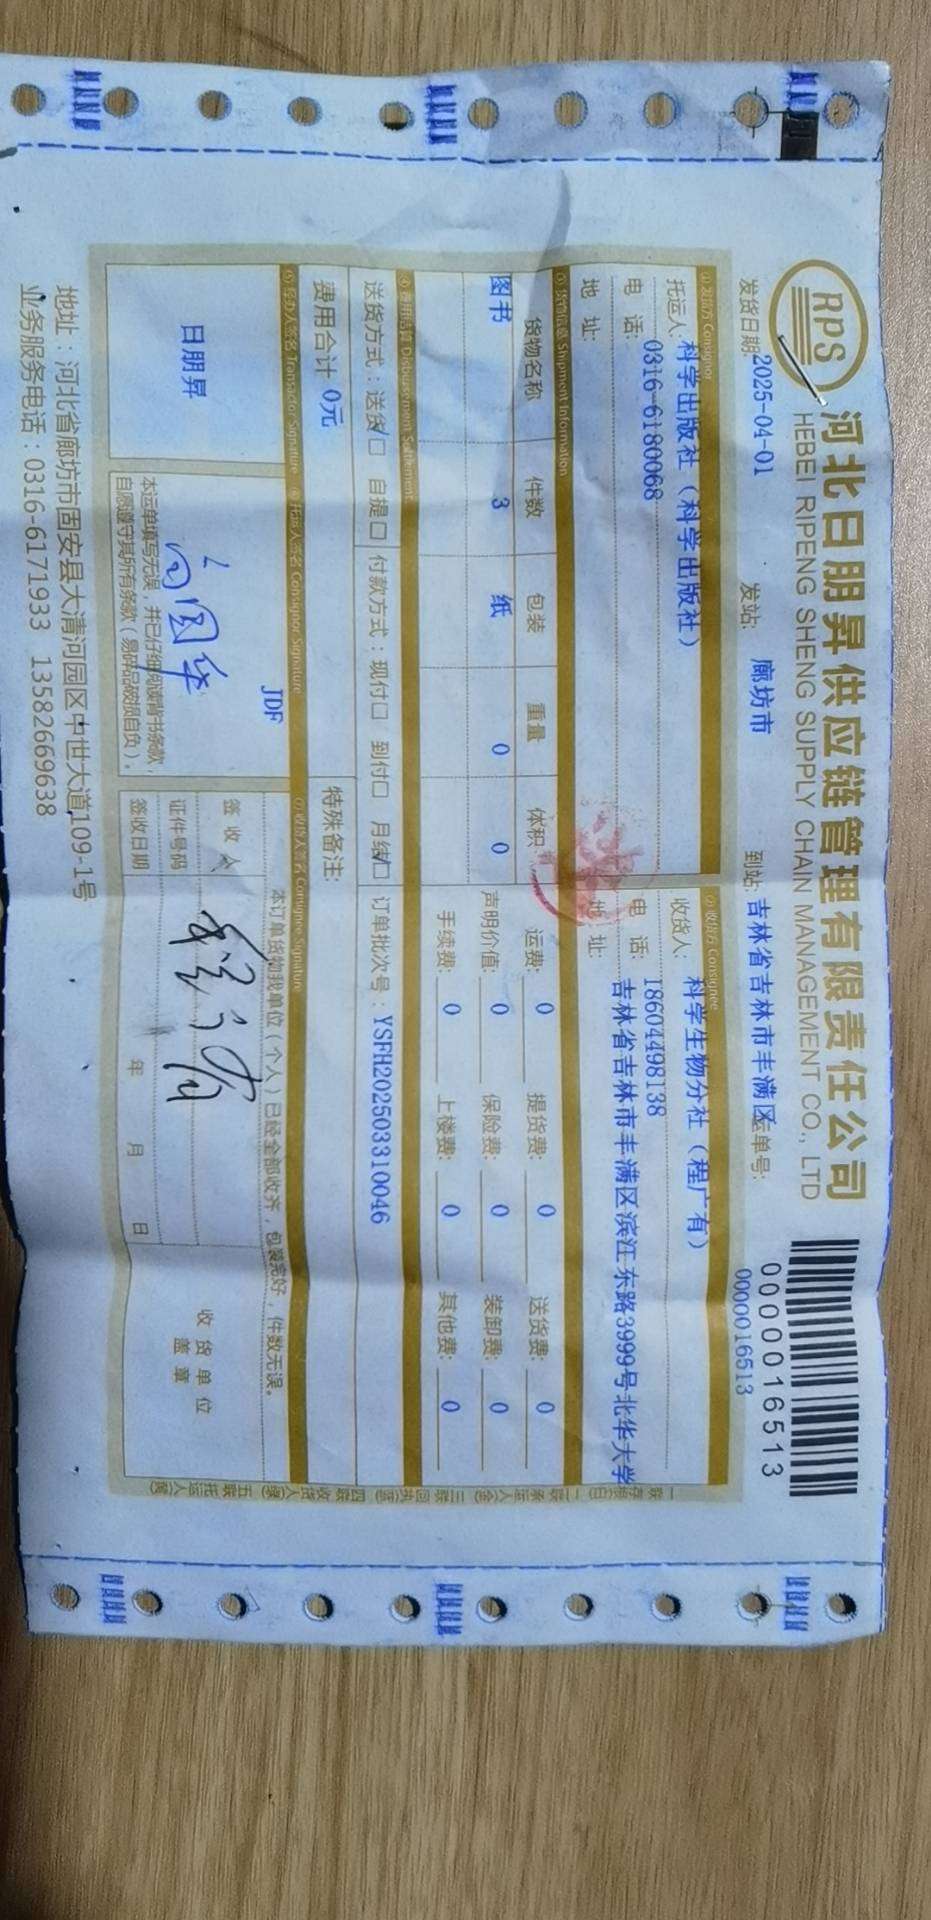 RPS
河北日朋昇供应链管理有限责任公司
HEBEI RIPENG SHENG SUPPLY CHAIN MANAGEMENT CO., LTD
0000016513
发货日期: 2025-04-01 发站: 廊坊市 到站: 吉林省吉林市丰满区 运单号: 0000016513
①发货方 Consignor ②收货方 Consignee
托运人: 科学出版社（科学出版社） 收货人: 科学生物分社（程广有）
电 话: 0316-6180068 电 话: 18604498138
地 址: 地 址: 吉林省吉林市丰满区滨江东路3999号北华大学
③货物信息 Shipment Information
货物名称 件数 包装 重量 体积 运费: 0 提货费: 0 送货费: 0
图书 3 纸 0 0 声明价值: 0 保险费: 0 装卸费: 0
手续费: 0 上楼费: 0 其他费: 0
④费用结算 Disbursement Settlement
送货方式：送货 自提 付款方式：现付 到付 月结 订单批次号：YSFH202503310046
费用合计 0元 特殊备注:
⑤经办人签名 Transactor Signature ⑥托运人签名 Consignor Signature ⑦收货人签名 Consignee Signature
日朋昇
JDF
本运单填写无误，并已仔细阅读背书条款，
自愿遵守其所有条款（易碎品破损自负）。
本订单货物我单位（个人）已经全部收齐，包装完好，件数无误。
签 收 人
证件号码
签收日期 年 月 日
收 货 单 位
盖 章
地址：河北省廊坊市固安县大清河园区中世大道109-1号
业务服务电话：0316-6171933 13582669638